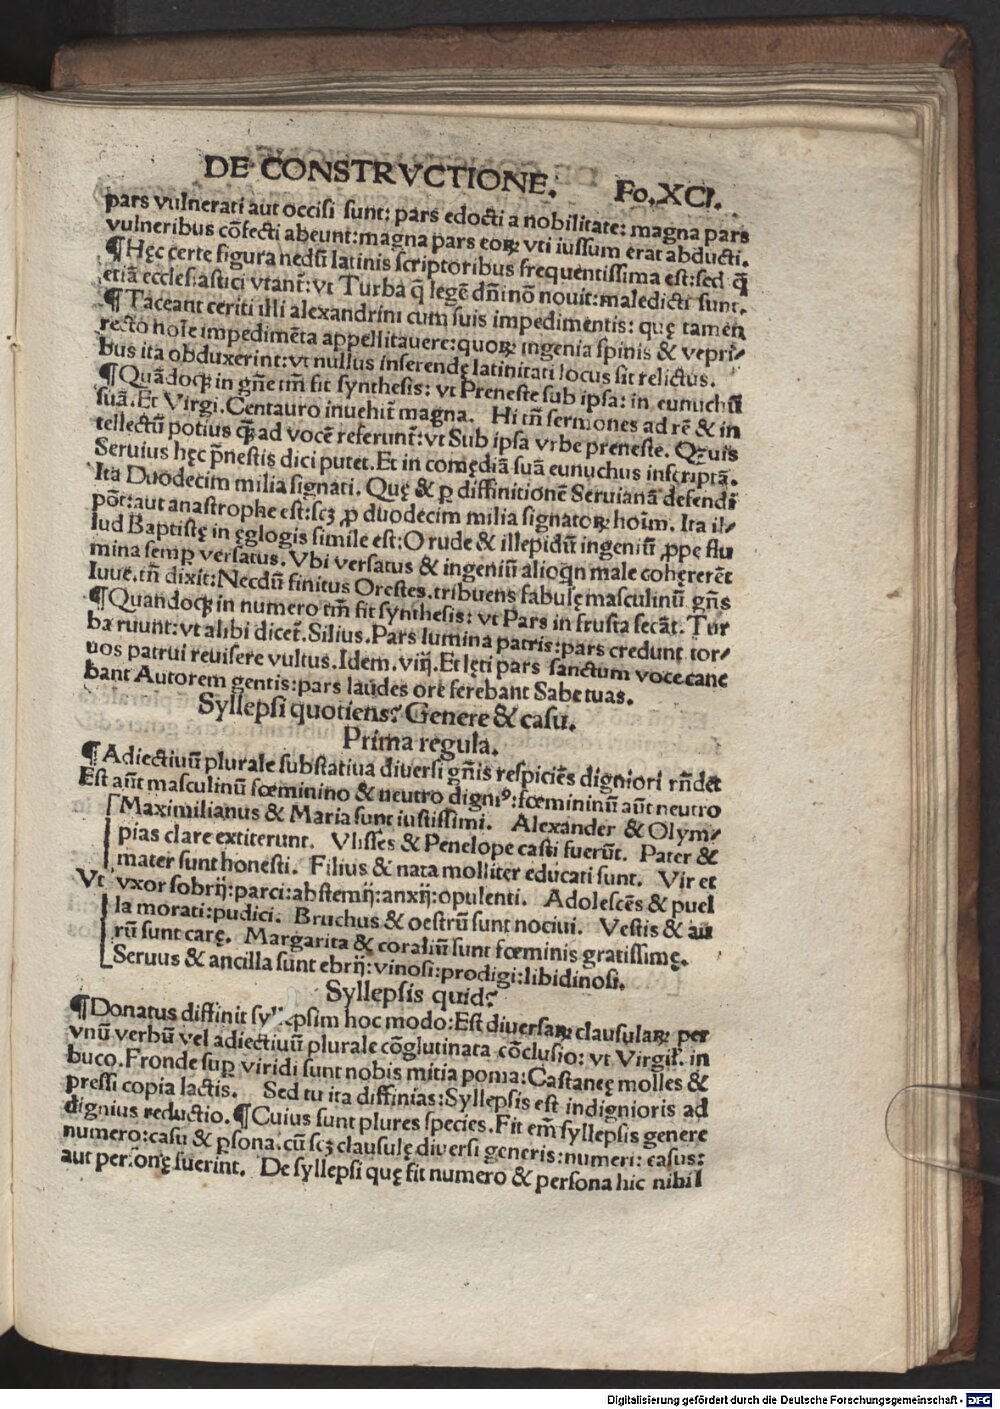 DE CONSTRVCTIONE. Fo.XCI.
pars vulnerati aut occisi sunt: pars edocti a nobilitate: magna pars
vulneribus cõfecti abeunt: magna pars eoꝝ vti iussum erat abducti.
¶Hęc certe figura nedũ latinis scriptoribus frequentissima est: sed q̃
etiã ecclesiastici vtant᷑: vt Turba q̃ legẽ dñi nõ nouit: maledicti sunt.
¶Taceant ceriti illi alexandrini cum suis impedimentis: quę tamen
recto noĩe impedimẽta appellitauere: quoꝝ ingenia spinis & vepri/
bus ita obduxerint: vt nullus inserendę latinitati locus sit relictus.
¶Quãdoqꝫ in gñe tm̃ fit synthesis: vt Preneste sub ipsa: in eunuchũ
suã. Et Virgi. Centauro inuehit᷑ magna. Hi tñ sermones ad rẽ & in
tellectũ potius q̃ȝ ad vocẽ referunt᷑: vt Sub ipsa vrbe preneste. Qȝuis
Seruius hęc p̃nestis dici putet. Et in comędiã suã eunuchus inscriptã.
Ita Duodecim milia signati. Quę & ꝑ diffinitionẽ Seruianã defendi
põt: aut anastrophe est: scȝ ꝓ duodecim milia signatoꝝ hoĩm. Ita il/
lud Baptistę in ęglogis simile est: O rude & illepidũ ingeniũ ꝓpe flu
mina semꝑ versatus. Vbi versatus & ingeniũ alioqͥn male cohęrerẽt
Iuue. tñ dixit: Necdũ finitus Orestes. tribuens fabulę masculinũ gñs
¶Quandoqꝫ in numero tm̃ fit synthesis: vt Pars in frusta secãt. Tur
ba ruunt: vt alibi dicet᷑. Silius. Pars lumina patris: pars credunt tor/
uos patrui reuisere vultus. Idem. viij. Et lęti pars sanctum voce cane
bant Autorem gentis: pars laudes ore ferebant Sabe tuas.
Syllepsi quotiens? Genere & casu.
Prima regula.
¶Adiectiuũ plurale substãtiua diuersi gñis respiciẽs digniori rñdet
Est aũt masculinũ fœminino & neutro digniꝰ: fœmininũ aũt neutro
Maximilianus & Maria sunt iustissimi. Alexander & Olym/
pias clare extiterunt. Vlisses & Penelope casti fuerũt. Pater &
mater sunt honesti. Filius & nata molliter educati sunt. Vir et
Vt vxor sobrij: parci: abstemij: anxij: opulenti. Adolescẽs & puel
la morati: pudici. Bruchus & oestrũ sunt nociui. Vestis & au
rũ sunt carę. Margarita & coraliũ sunt fœminis gratissimę.
Seruus & ancilla sunt ebrij: vinosi: prodigi: libidinosi.
Syllepsis quid?
¶Donatus diffinit syllepsim hoc modo: Est diuersaꝝ clausulaꝝ per
vnũ verbũ vel adiectiuũ plurale cõglutinata cõclusio: vt Virgil. in
buco. Fronde suꝑ viridi sunt nobis mitia poma: Castaneę molles &
pressi copia lactis. Sed tu ita diffinias: Syllepsis est indignioris ad
dignius reductio. ¶Cuius sunt plures species. Fit em̃ syllepsis genere
numero: casu & ꝑsona. cũ scȝ clausulę diuersi generis: numeri: casus:
aut personę fuerint. De syllepsi quę fit numero & persona hic nihil
Digitalisierung gefördert durch die Deutsche Forschungsgemeinschaft - DFG